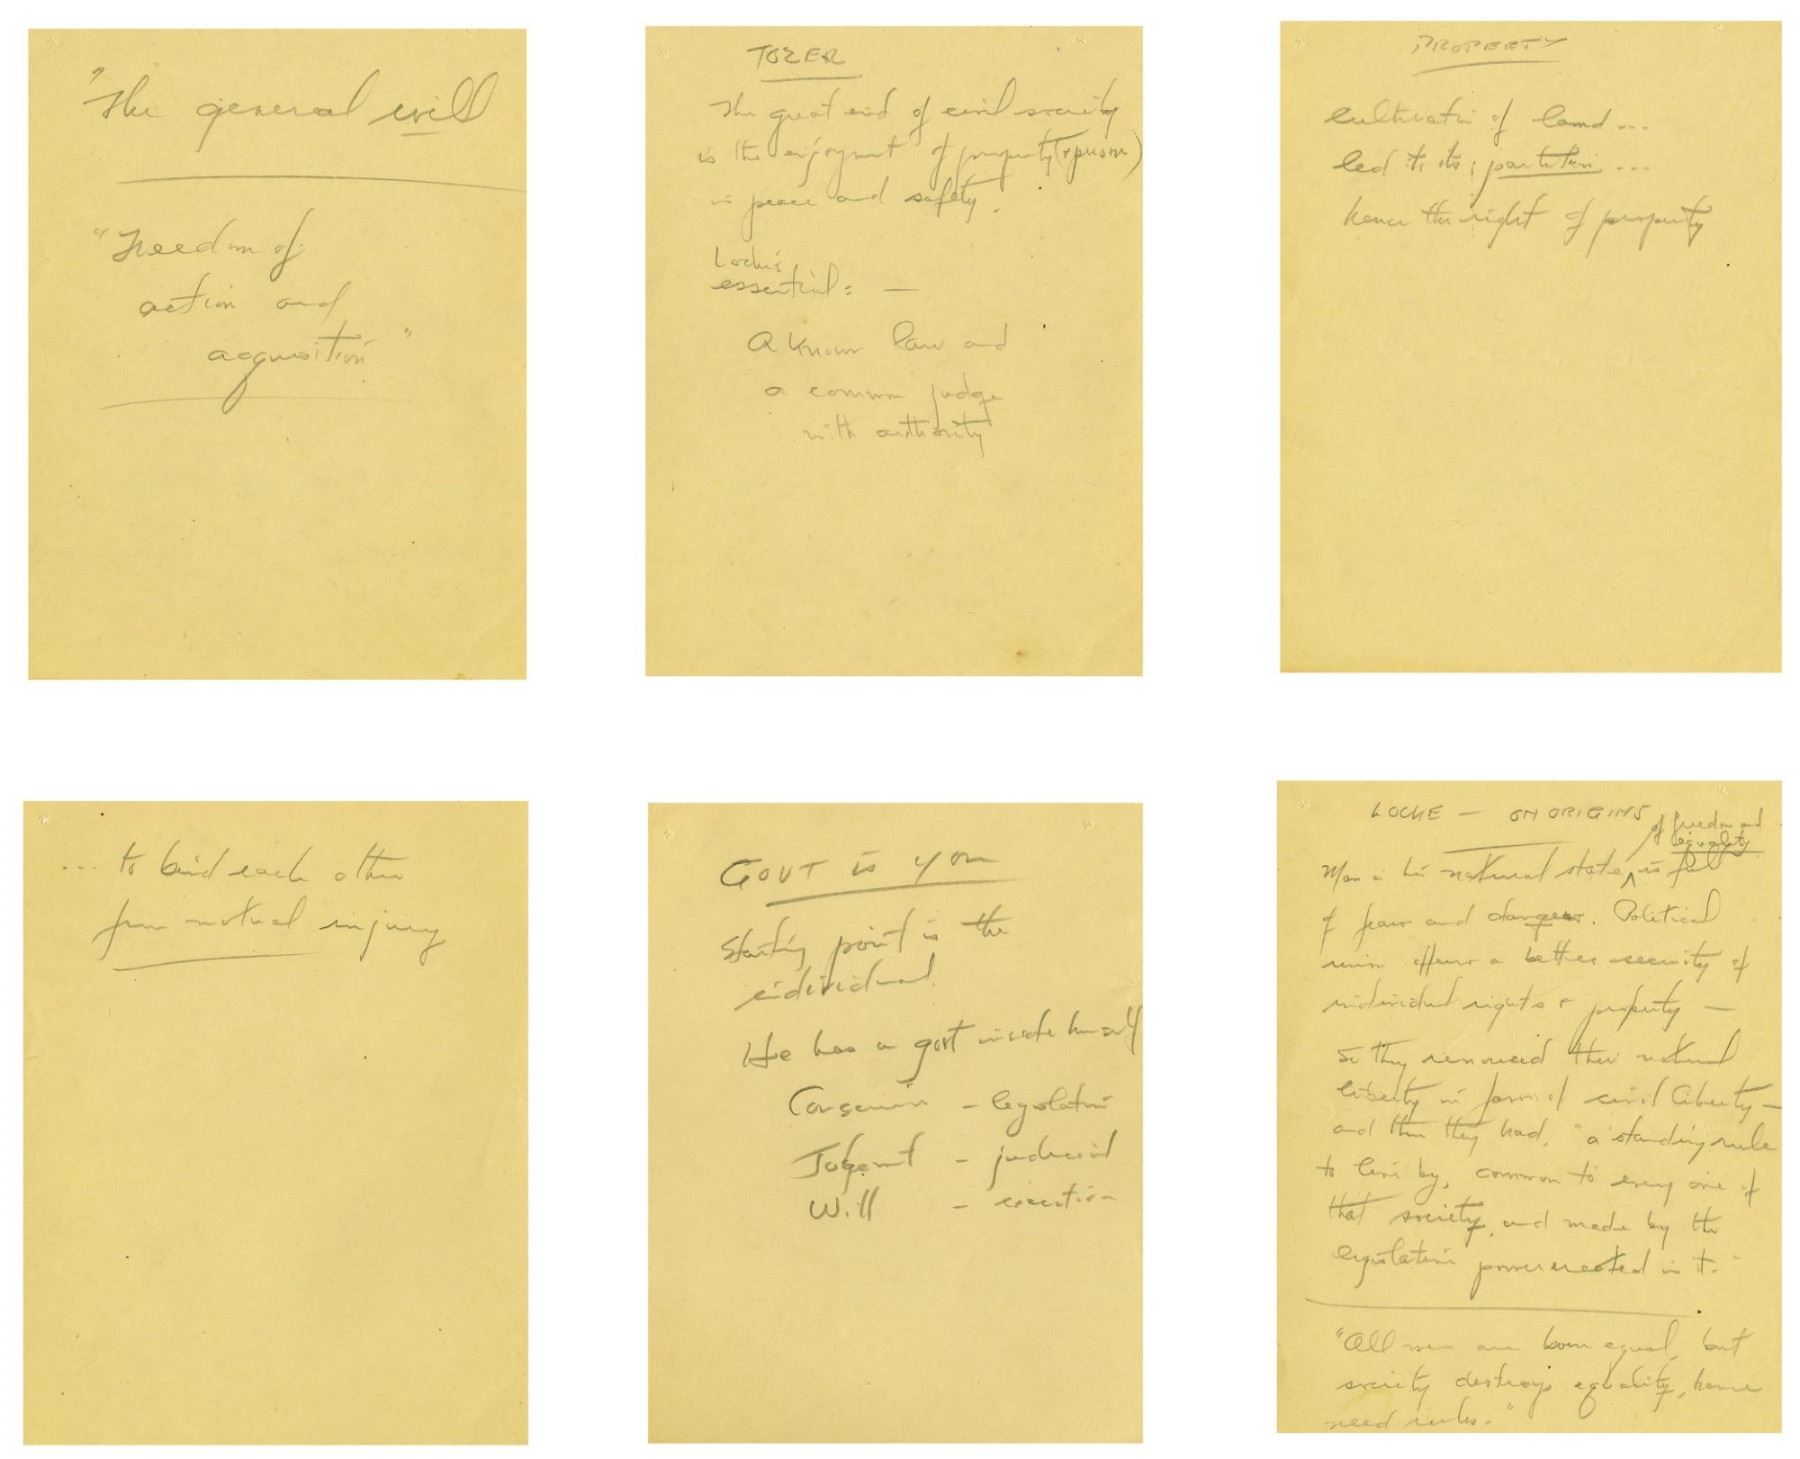 "The general will
"Freedom of
action and
acquisition"
TOZER
The great end of civil society
is the enjoyment of property (+ person)
in peace and safety.
Locke's
essential: —
A known law and
a common judge
with authority
PROPERTY
Cultivation of land...
led to its partition...
hence the right of property
... to bind each other
from mutual injury
GOVT is you
Starting point is the
individual
He has a govt inside himself
Conscience - legislative
Judgemt - judicial
Will - execution
LOCKE — ON ORIGINS
of freedom and
equality
Man in his natural state is full
of fear and danger. Political
union offers a better security of
individual rights + property —
So they renounced their natural
liberty in favor of civil liberty —
and thus they had, "a standing rule
to live by, common to every one of
that society, and made by the
legislative power erected in it."
"All men are born equal, but
society destroys equality, hence
need rules."